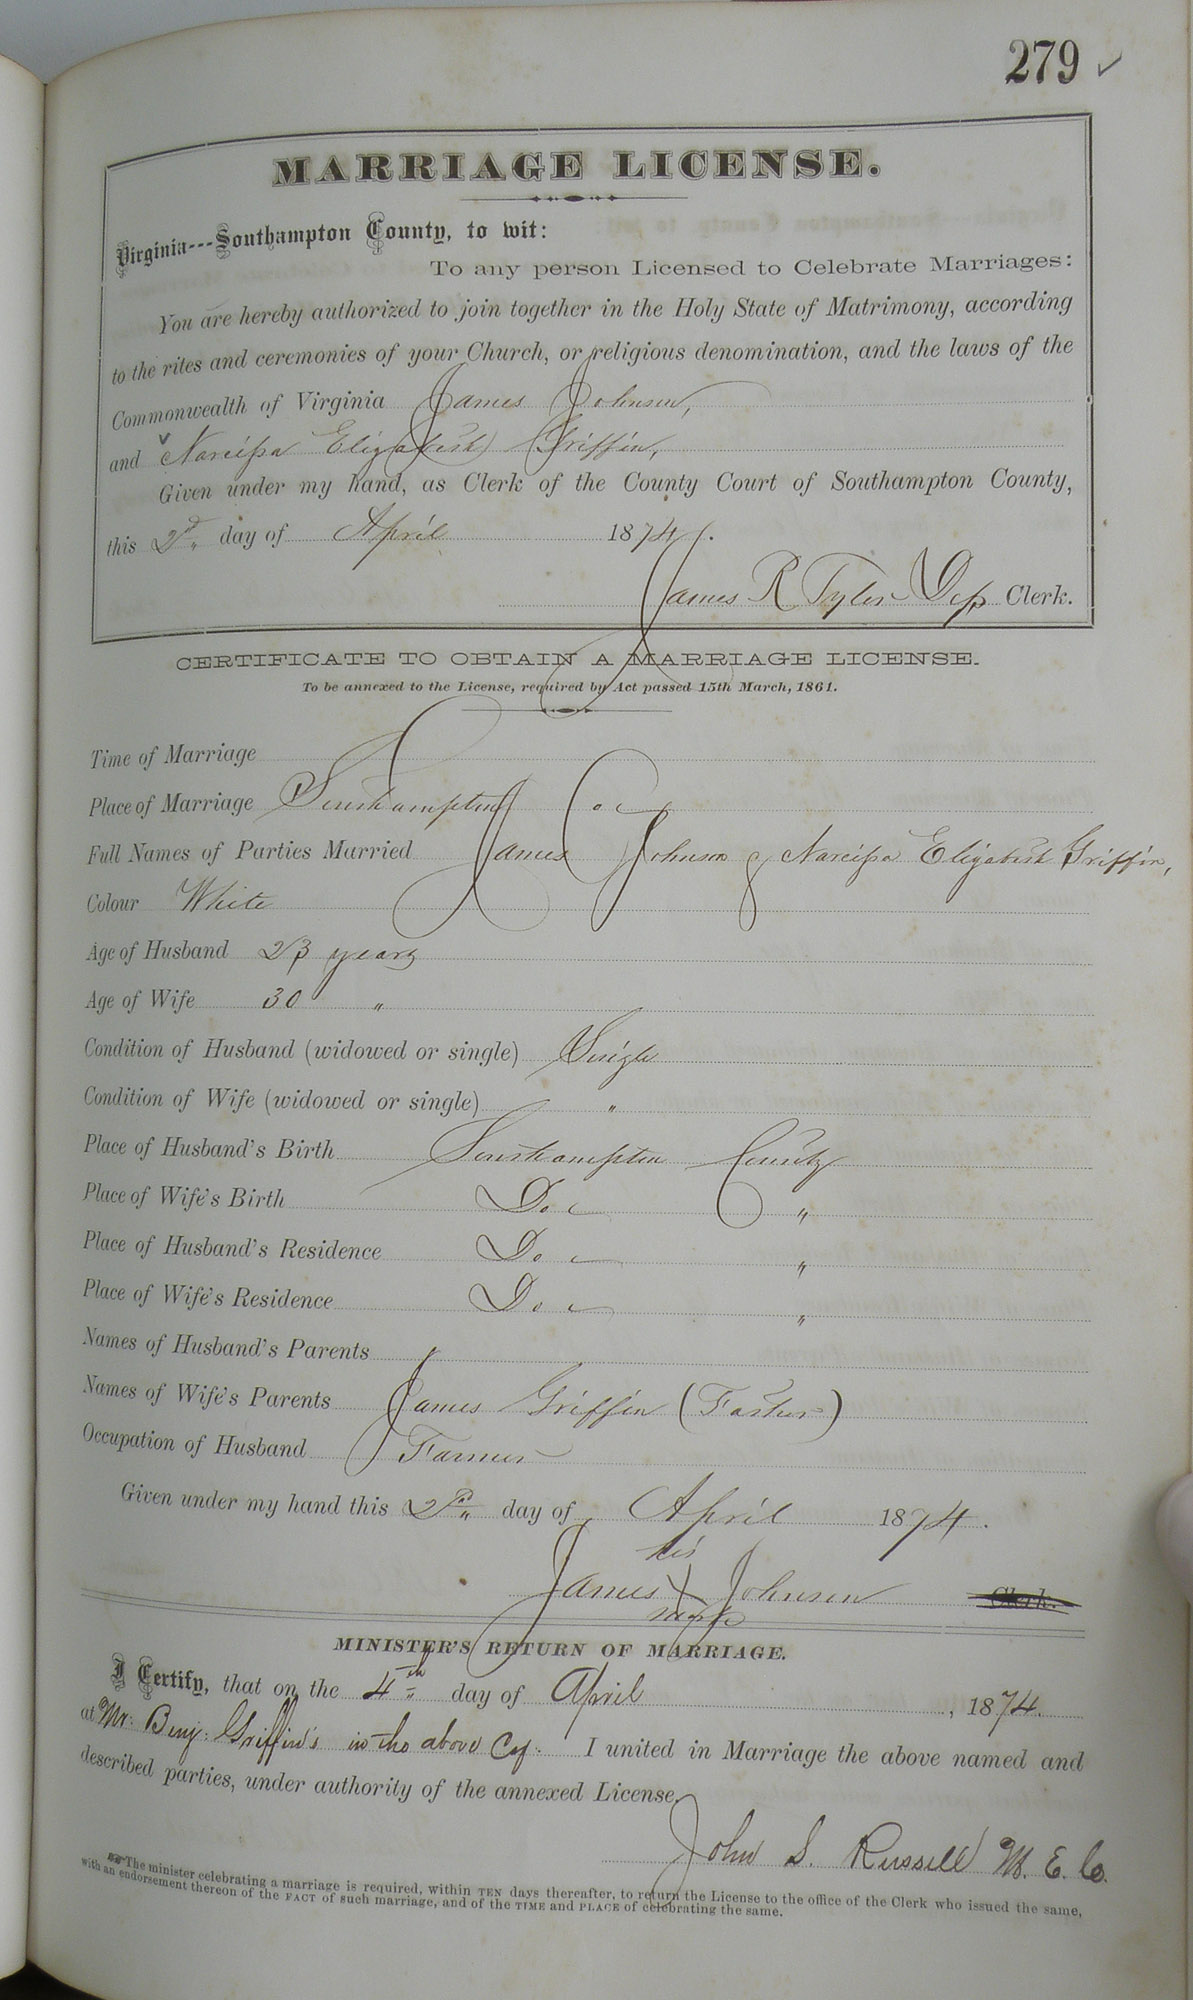 279 ✓
MARRIAGE LICENSE.
Virginia---Southampton County, to wit:
To any person Licensed to Celebrate Marriages:
You are hereby authorized to join together in the Holy State of Matrimony, according
to the rites and ceremonies of your Church, or religious denomination, and the laws of the
Commonwealth of Virginia James Johnson,
and Narcissa Elizabeth Griffin,
Given under my hand, as Clerk of the County Court of Southampton County,
this 2d day of April 1874.
James R Tyler Dep Clerk.
CERTIFICATE TO OBTAIN A MARRIAGE LICENSE.
To be annexed to the License, required by Act passed 15th March, 1861.
Time of Marriage
Place of Marriage Southampton Co
Full Names of Parties Married James Johnson & Narcissa Elizabeth Griffin,
Colour White
Age of Husband 23 years
Age of Wife 30 "
Condition of Husband (widowed or single) Single
Condition of Wife (widowed or single) "
Place of Husband's Birth Southampton County
Place of Wife's Birth Do "
Place of Husband's Residence Do "
Place of Wife's Residence Do "
Names of Husband's Parents
Names of Wife's Parents James Griffin (Father)
Occupation of Husband Farmer
Given under my hand this 2d day of April 1874.
his
James X Johnson Clerk.
mark
MINISTER'S RETURN OF MARRIAGE.
I Certify, that on the 4th day of April, 1874.
at Mr. Benj: Griffin's in the above Co. I united in Marriage the above named and
described parties, under authority of the annexed License.
John S. Russell M. E. C.
The minister celebrating a marriage is required, within TEN days thereafter, to return the License to the office of the Clerk who issued the same,
with an endorsement thereon of the FACT of such marriage, and of the TIME and PLACE of celebrating the same.